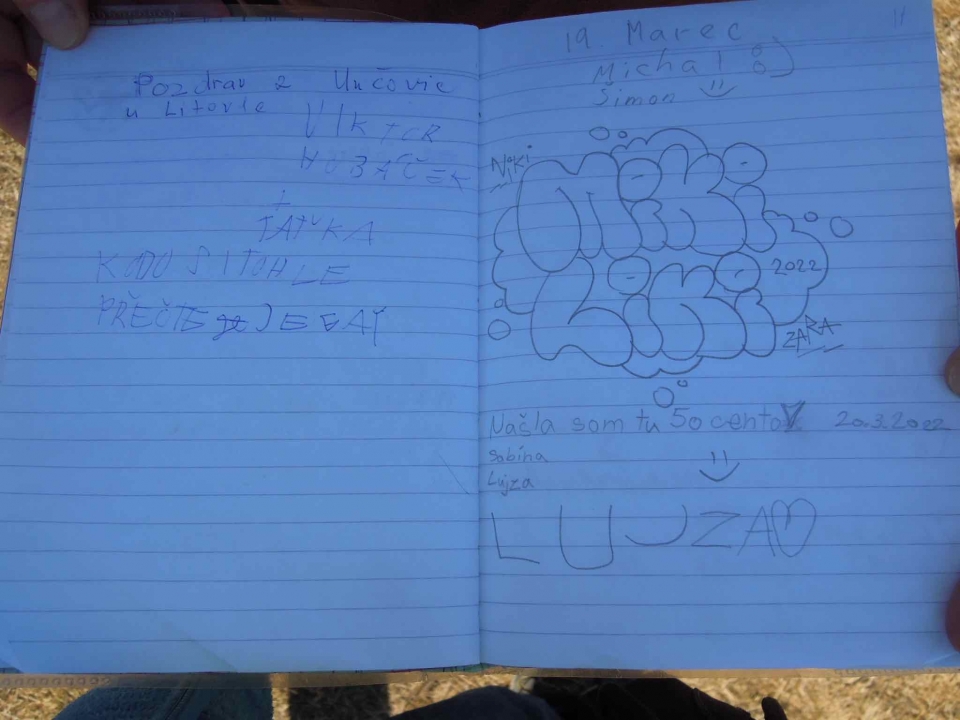 Pozdrav z Unčovic
u Litovle
VIKTOR
HUBÁČEK
+
TAŤKA
KODO SI TOHLE
PŘEČTE JE
11
19. Marec
Michal :)
Šimon :)
Niki
Niki
2022
Liki
ZARA
Našla som tu 50 centoV 20.3.2022
Sabina
Lujza
LUJZA